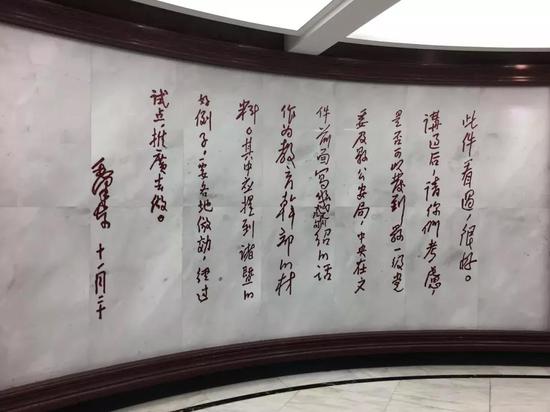 此件看過，很好。
講过后，請你們考慮，
是否可以發到縣一级党
委及縣公安局，中央在文
件前面写几句介绍的话
作为教育幹部的材
料。其中应提到諸暨的
好例子，要各地倣効，经过
试点，推廣去做。
毛泽东
十一月二十